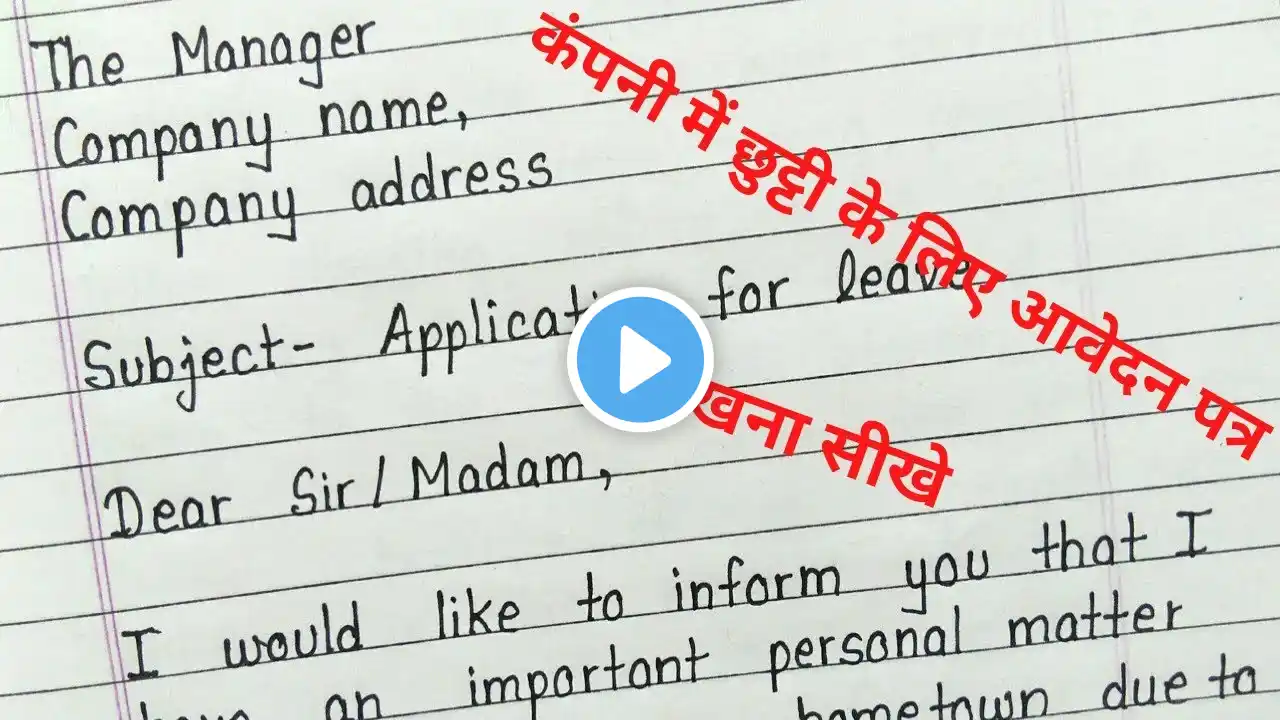 The Manager
Company name,
Company address
कंपनी में छुट्टी के लिए आवेदन पत्र
Subject- for leave
सीखे
Dear Sir/Madam,
I would like to inform you that I
an important personal matter
hometown due to